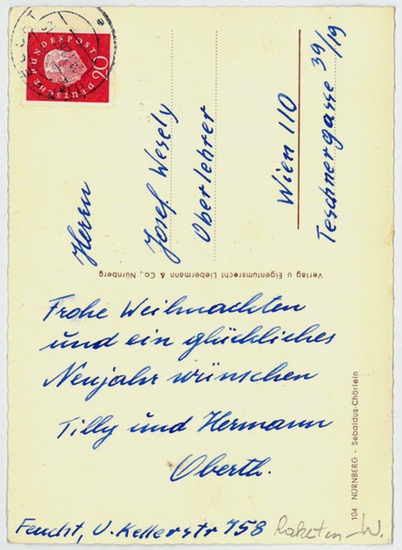 DEUTSCHE BUNDESPOST
20
Herrn
Josef Wesely
Oberlehrer
Wien 110
Teschnergasse 39/19
Verlag u Eigentumsrecht Liebermann & Co., Nürnberg
Frohe Weihnachten
und ein glückliches
Neujahr wünschen
Tilly und Hermann
Oberth.
104 NÜRNBERG - Sebaldus-Chörlein
Feucht, U. Kellerstr 158 Raketen-W.